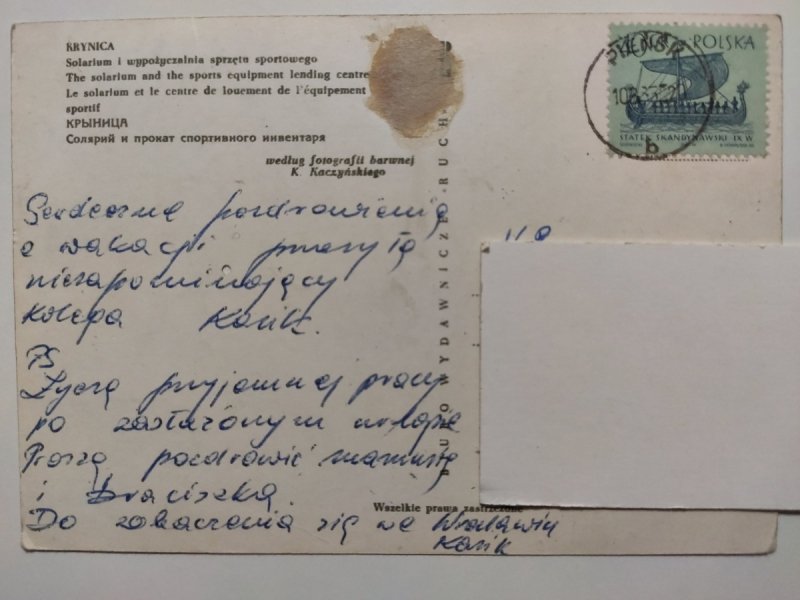 KRYNICA
Solarium i wypożyczalnia sprzętu sportowego
The solarium and the sports equipment lending centre
Le solarium et le centre de louement de l'équipement
sportif
КРЫНИЦА
Солярий и прокат спортивного инвентаря
według fotografii barwnej
K. Kaczyńskiego
BIURO WYDAWNICZE „RUCH"
POLSKA
STATEK SKANDYNAWSKI IX W
b
Serdeczne pozdrowienia
z wakacji przesyła
niezapominający
kolega Kazik.
PS
Życzę przyjemnej pracy
po zasłużonym urlopie
Proszę pozdrowić mamusię
i braciszka.
Wszelkie prawa zastrzeżone
Do zobaczenia się we Wrocławiu
Kazik